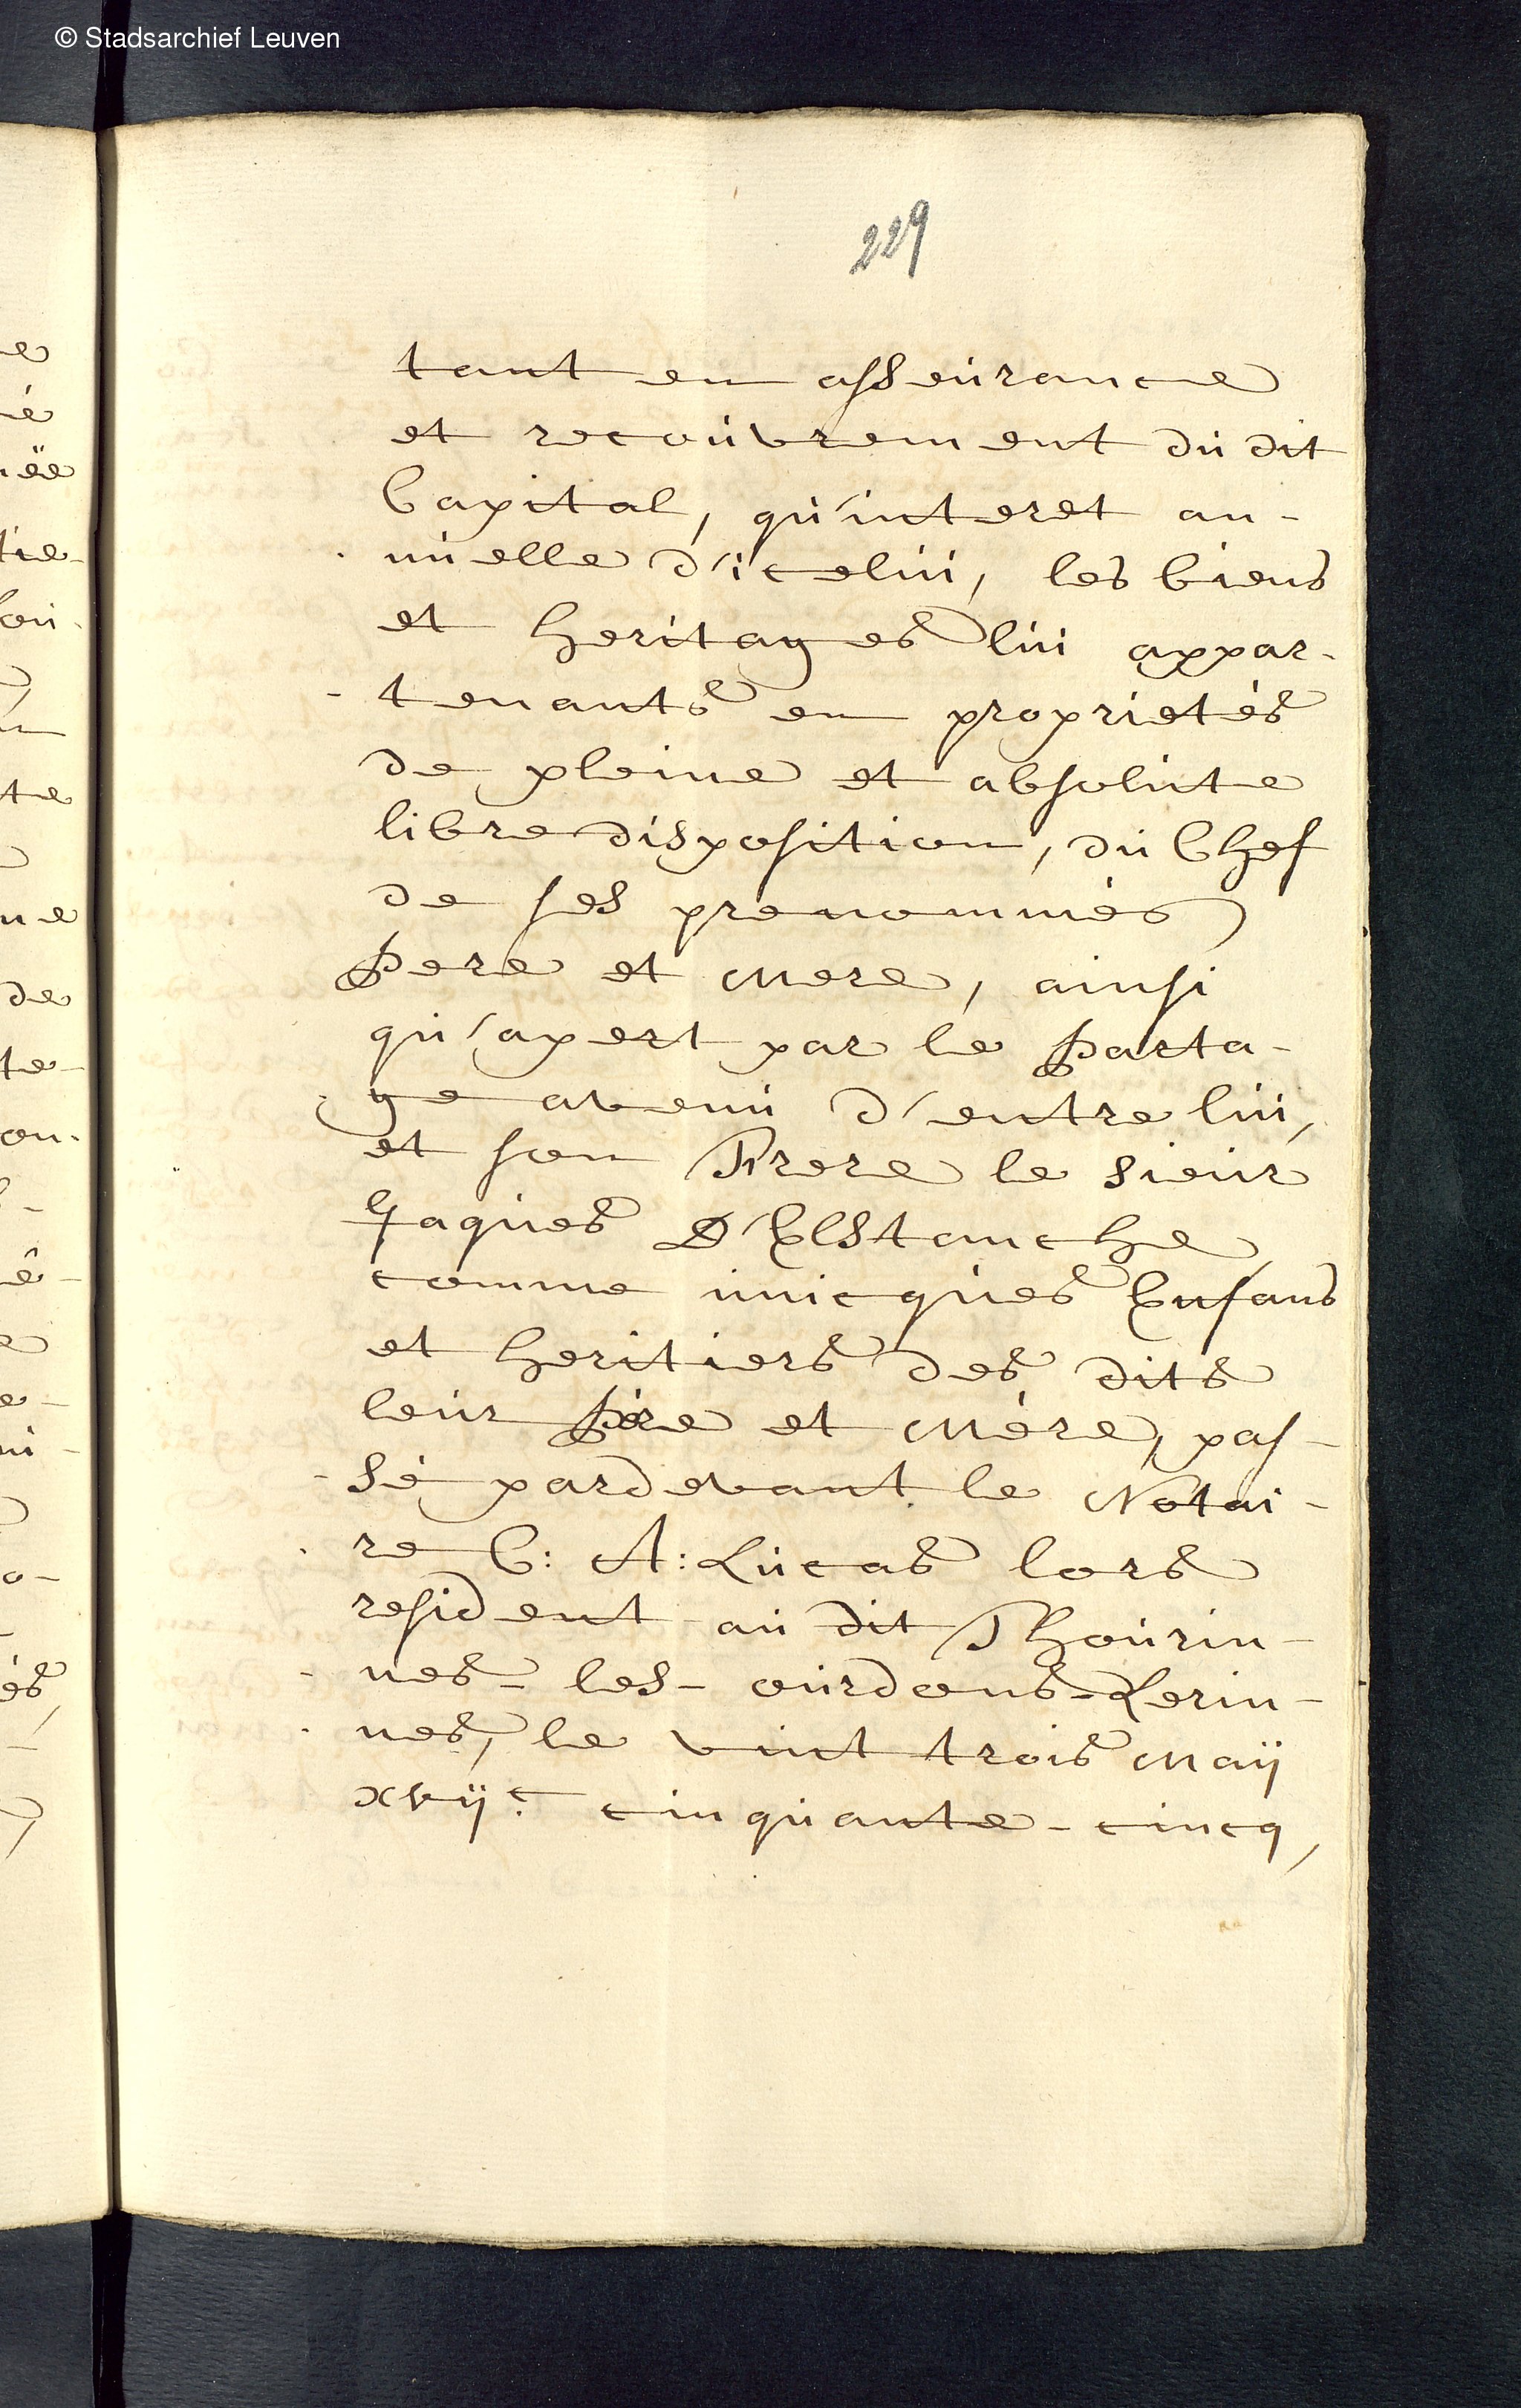 © Stadsarchief Leuven
229
tant en asseurance
et recouvrement du dit
Capital, qu'interet an-
nuelle d'icelui, les biens
et heritages lui appar-
tenants en proprietés
de pleine et absolute
libre disposition, du Chef
de ses prenommés
Pere et Mere, ainsi
qu'apert par le Parta-
ge avenu d'entre lui,
et son Frere le Sieur
Jaques D'Elstanche,
comme unicques Enfans
et heritiers des dits
leur Père et Mère, pas-
sé pardevant le Notai-
re C: A: Lucas lors
resident au dit Thourin-
nes-les-ourdons-Lerin-
nes, le vint trois Maij
xvijc. cinquante-cincq,